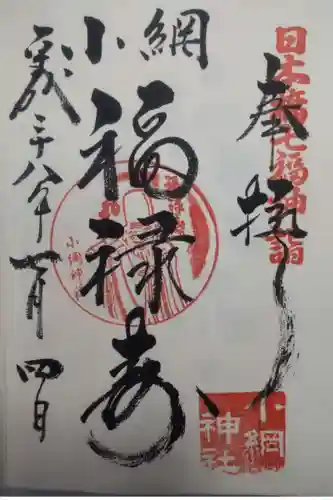 日本橋七福神詣
奉拝
小網
福禄寿
小網神社
平成二十八年一月四日